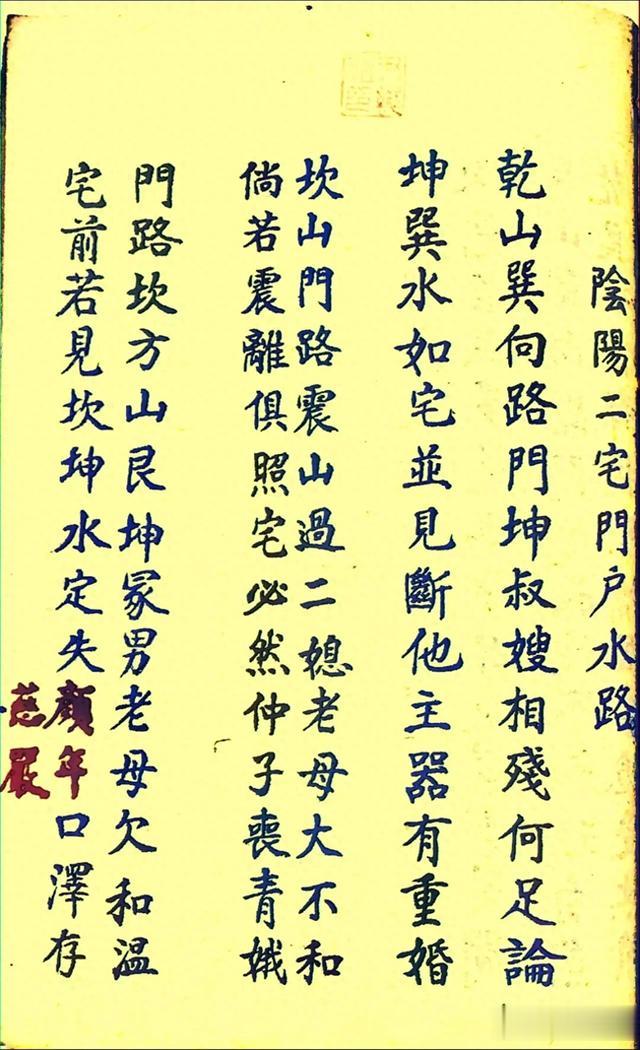 陰陽二宅門户水路
乾山巽向路門坤叔嫂相殘何足論
坤巽水如宅並見斷他主器有重婚
坎山門路震山過二媳老母大不和
倘若震離俱照宅必然仲子喪青娥
門路坎方山艮坤冢男老母欠和温
宅前若見坎坤水定失顏年口澤存
慈嚴